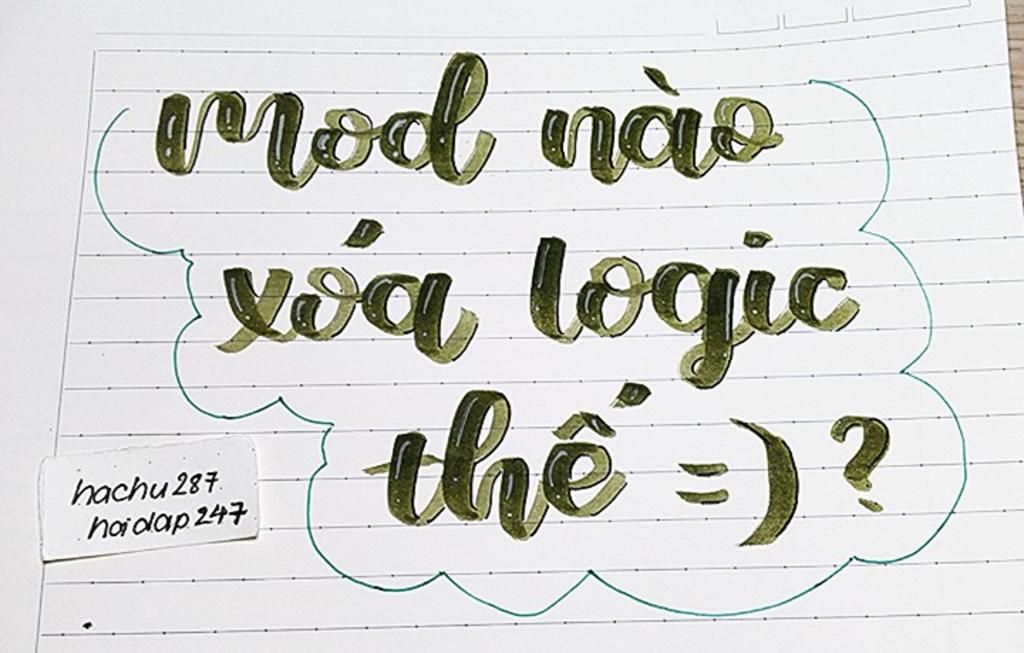 mod nào
xóa logic
thế =) ?
hachu287
hoidap247